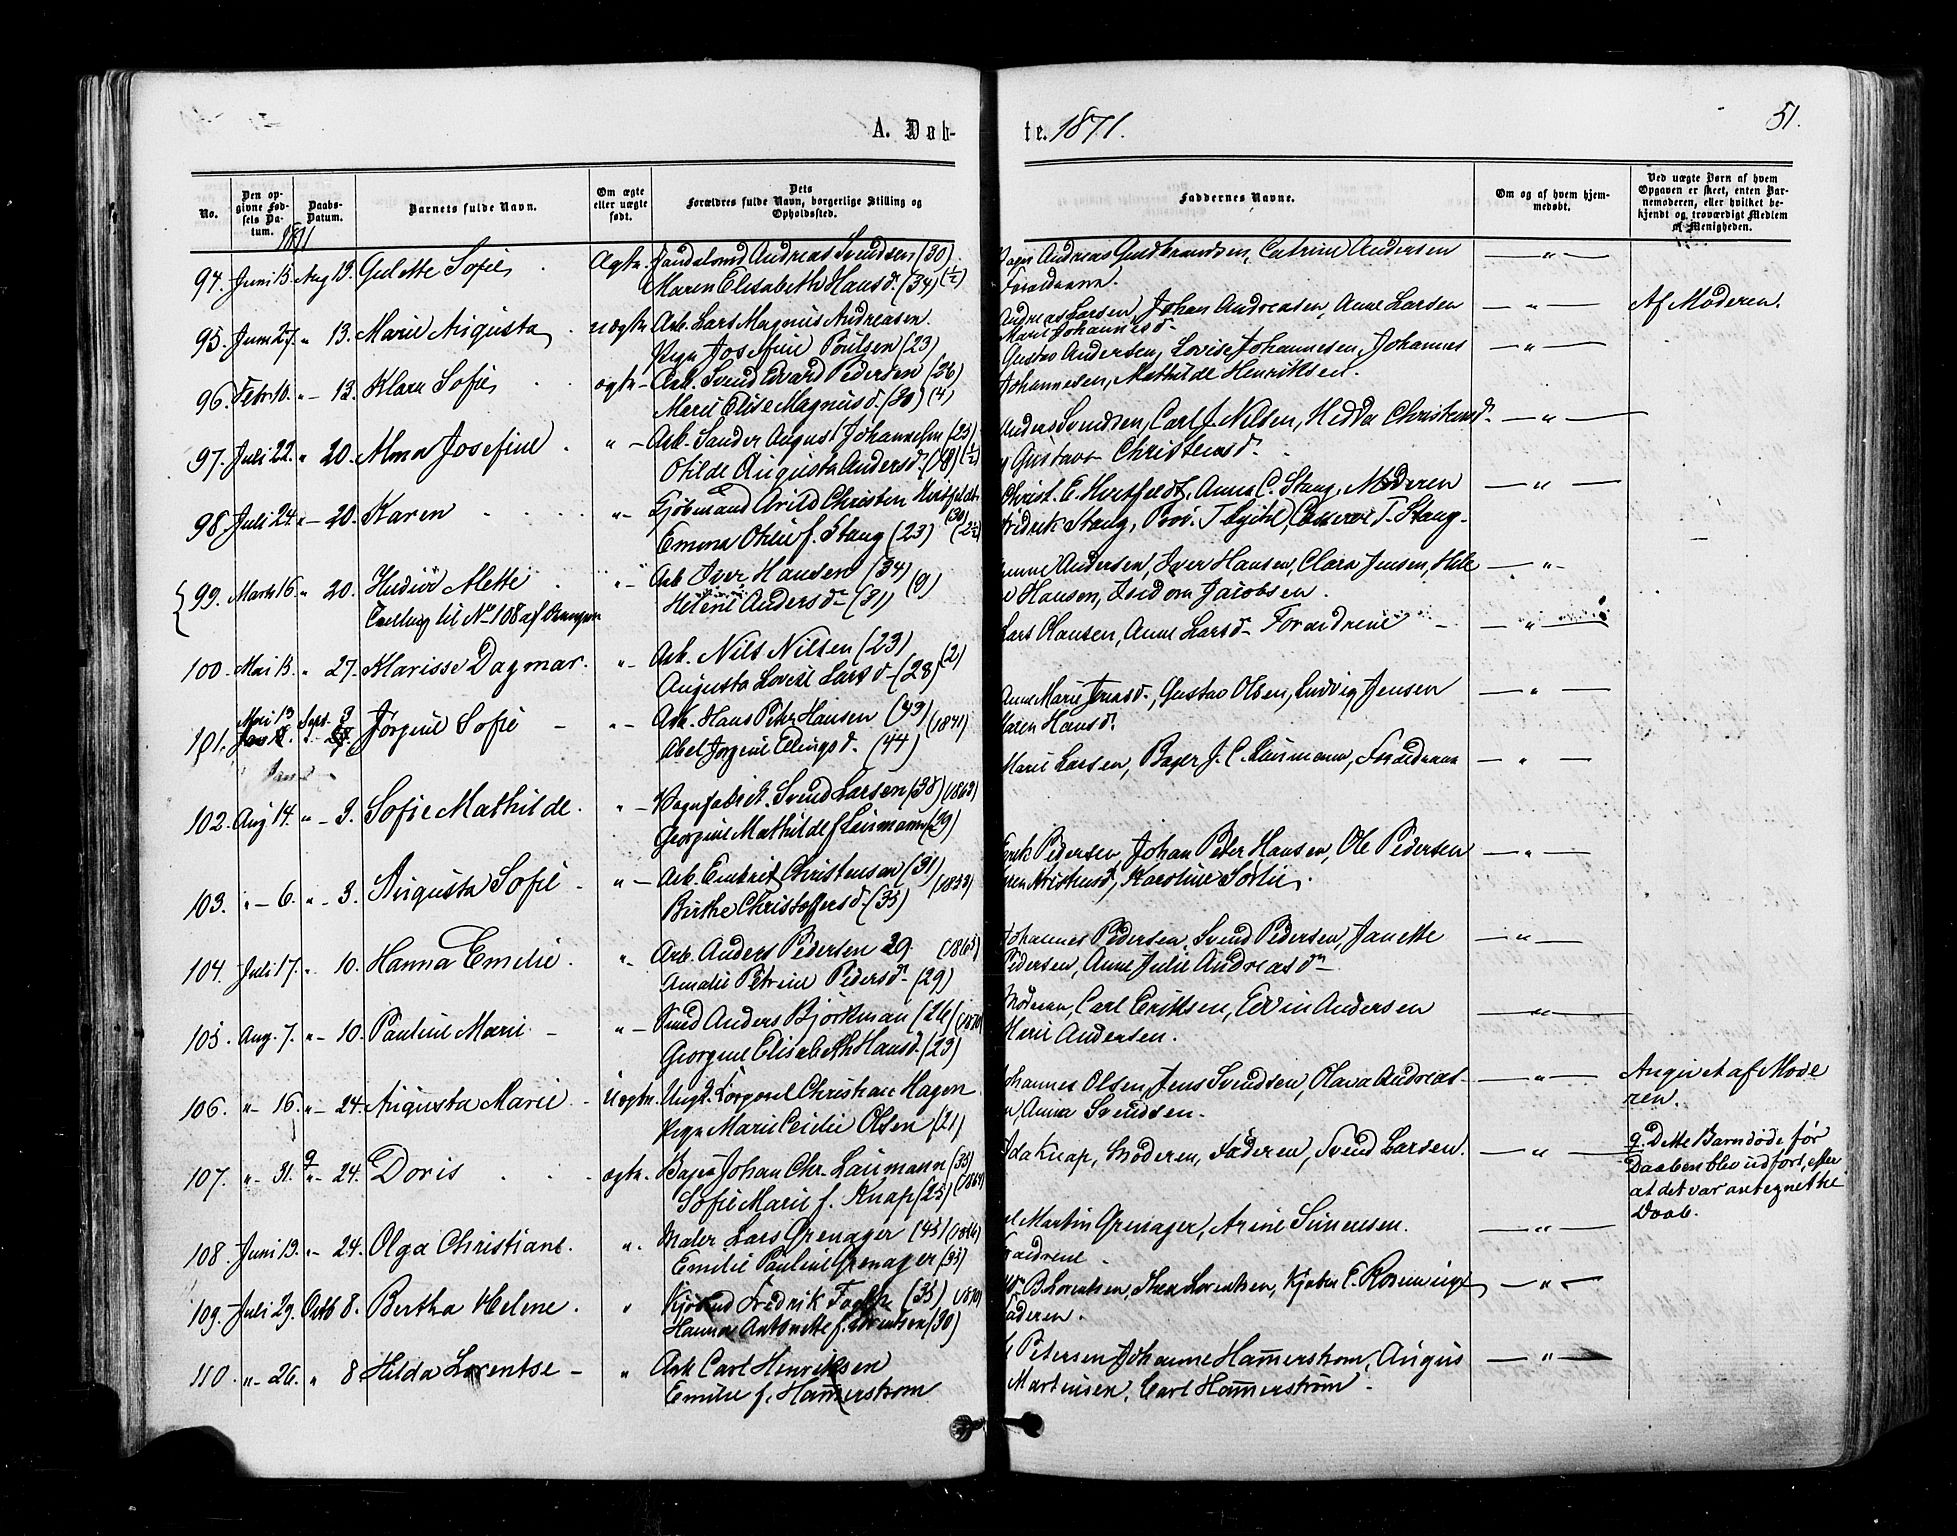 A. Døb-
te. 1871.
51.
No.
Den op-
givne Fød-
sels Da-
tum.
Daabs-
Datum.
Barnets fulde Navn.
Om ægte
eller uægte
født.
Dets
Forældres fulde Navn, borgerlige Stilling og
Opholdssted.
Faddernes Navne.
Om og af hvem hjem-
medøbt.
Ved uægte Børn af hvem
Opgaven er skeet, enten Bar-
nemoderen, eller hvilket be-
kjendt og troværdigt Medlem
af Menigheden.
1871
94. Juni 13. Aug 13. Gulette Sofie Ægte. Andreas Svendsen (30)
Maren Elisabeth Hansd. (34) (1/2)
Andreas Guldbrandsen, Catrine Andersen
Forældrene.
95. Juni 27. " 13. Marie Augusta uægte. Arb. Lars Magnus Andreasen.
Pige Josefine Poulsen (23)
Andreas Larsen, Johan Andreasen, Anne Larsen
Marie Johannesd.
Af Moderen.
96. Febr 10. " 13. Klara Sofie ægte Arb. Svend Edvard Pedersen (26)
Marie Elise Magnusd. (30) (4)
Gustav Andersen, Lovise Johannesen, Johannes
Johannesen, Mathilde Henriksen.
97. Juli 22. " 20. Alma Josefine " Arb. Sander August Johannesen (25)
Otilde Augusta Andersd. (18) (1/2)
Anders Svendsen, Carl J. Nilsen, Hedda Christensd.
Gustava Christensd.
98. Juli 24. " 20. Karen " Kjøbmand Arild Christen Hertfeldt (30)
Emma Otilie f. Stang (23) (2 1/2)
Christ. E. Hertfeldt, Anna C. Stang, Moderen
Fredrik Stang, T. Stang.
99. Marts 16. " 20. Mette " Arb Iver Hansen (34)
Helene Andersd. (31) (9)
Tvilling til No 108 af
Andersen, Iver Hansen, Clara Jensen,
Hansen, Isidora Jacobsen.
100. Mai 13. " 27. Marisse Dagmar. " Arb. Nils Nilsen (23)
Augusta Lovise Larsd. (28) (2)
Lars Hansen, Anne Larsd. Forældrene
101. Mai 13 Sept. 3 Jørgine Sofie " Arb. Hans Peter Hansen (43)
Abel Jørgine Ellingsd. (44) (1841)
Anne Marie Jensd., Gustav Olsen, Ludvig Jensen
Maren Hansd.
102. Aug 14. " 3. Sofie Mathilde. " Vognfabrik. Svend Larsen (38) (1863)
Georgine Mathilde f Laumann (29)
Marie Larsen, Bager J. C. Laumann, Forældrene
103. " 6. " 3. Augusta Sofie " Arb. Embrik Christensen (31)
Birthe Christoffersd. (35)
Erik Pedersen, Johan Peter Hansen, Ole Pedersen
Karoline Sørlie.
104. Juli 17. " 10. Hanna Emilie. " Arb. Anders Pedersen 29. (1865)
Amalie Petrine Pedersd. (29)
Johannes Pedersen, Svend Pedersen, Janette
Pedersen, Anne Julie Andreasd.
105. Aug. 7. " 10. Pauline Marie " Smed Anders Björkman (26) (1870)
Georgine Elisabeth Hansd. (23)
Moderen, Carl Eriksen, Edvin Andersen
Marie Andersen.
106. " 16. " 24. Augusta Marie Uægte. Ungk. Korporal Christian Hagen
Pige Marie Cecilie Olsen (21)
Johannes Olsen, Jens Svendsen, Olava Andreas-
en, Anna Svendsen.
Angivet af Mode
ren.
107. " 31. " 24. Doris ægte. Bager Johan Chr. Laumann (35)
Sofie Marie f. Knap (25) (1869)
Ida Knap, Moderen, Faderen, Svend Larsen.
9. Dette Barn døde før
Daaben blev udført, efter
at det var antegnet til
Daab.
108. Juni 19. " 24. Olga Christiane. " Maler Lars Grenager (45)
Emilie Pauline Grenager (35)
Martin Grenager, Arine Simensen.
Forældrene
109. Juli 29. Octb 8. Bertha Helene. " Fredrik (35) (1870)
Hanna Antonette f. Lorentsen (30)
B. Lorentsen, Thea Lorentsen, Kjøbm. C. Rosenvinge
Faderen.
110. " 26. " 8 Hilda Lorentse " Arb Carl Henriksen
Emilie f. Hammerstrøm
Petersen Johanne Hammerstrøm, August
Martinsen, Carl Hammerstrøm.